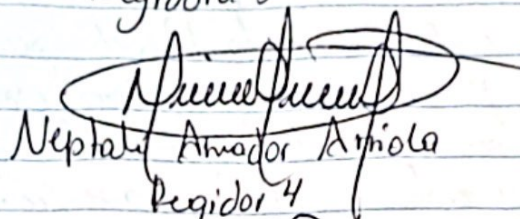 Neptaly Amador Arriola
Regidor 4